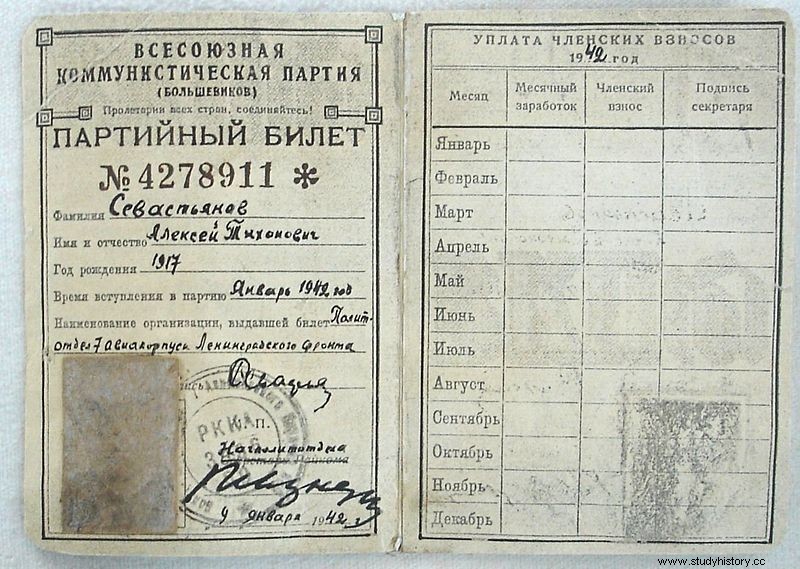 ВСЕСОЮЗНАЯ
КОММУНИСТИЧЕСКАЯ ПАРТИЯ
(БОЛЬШЕВИКОВ)
Пролетарии всех стран, соединяйтесь!
ПАРТИЙНЫЙ БИЛЕТ
№ 4278911 *
Фамилия Севастьянов
Имя и отчество Алексей Тихонович
Год рождения 1917
Время вступления в партию Январь 1942 год
Наименование организации, выдавшей билет Полит-
отдел 7 авиакорпуса Ленинградского Фронта
РККА
М.П.
Начполитотдела
9 января 1942 г.
УПЛАТА ЧЛЕНСКИХ ВЗНОСОВ
1942 год
Месяц Месячный заработок Членский взнос Подпись секретаря
Январь
Февраль
Март
Апрель
Май
Июнь
Июль
Август
Сентябрь
Октябрь
Ноябрь
Декабрь
www.studyhistory.cc